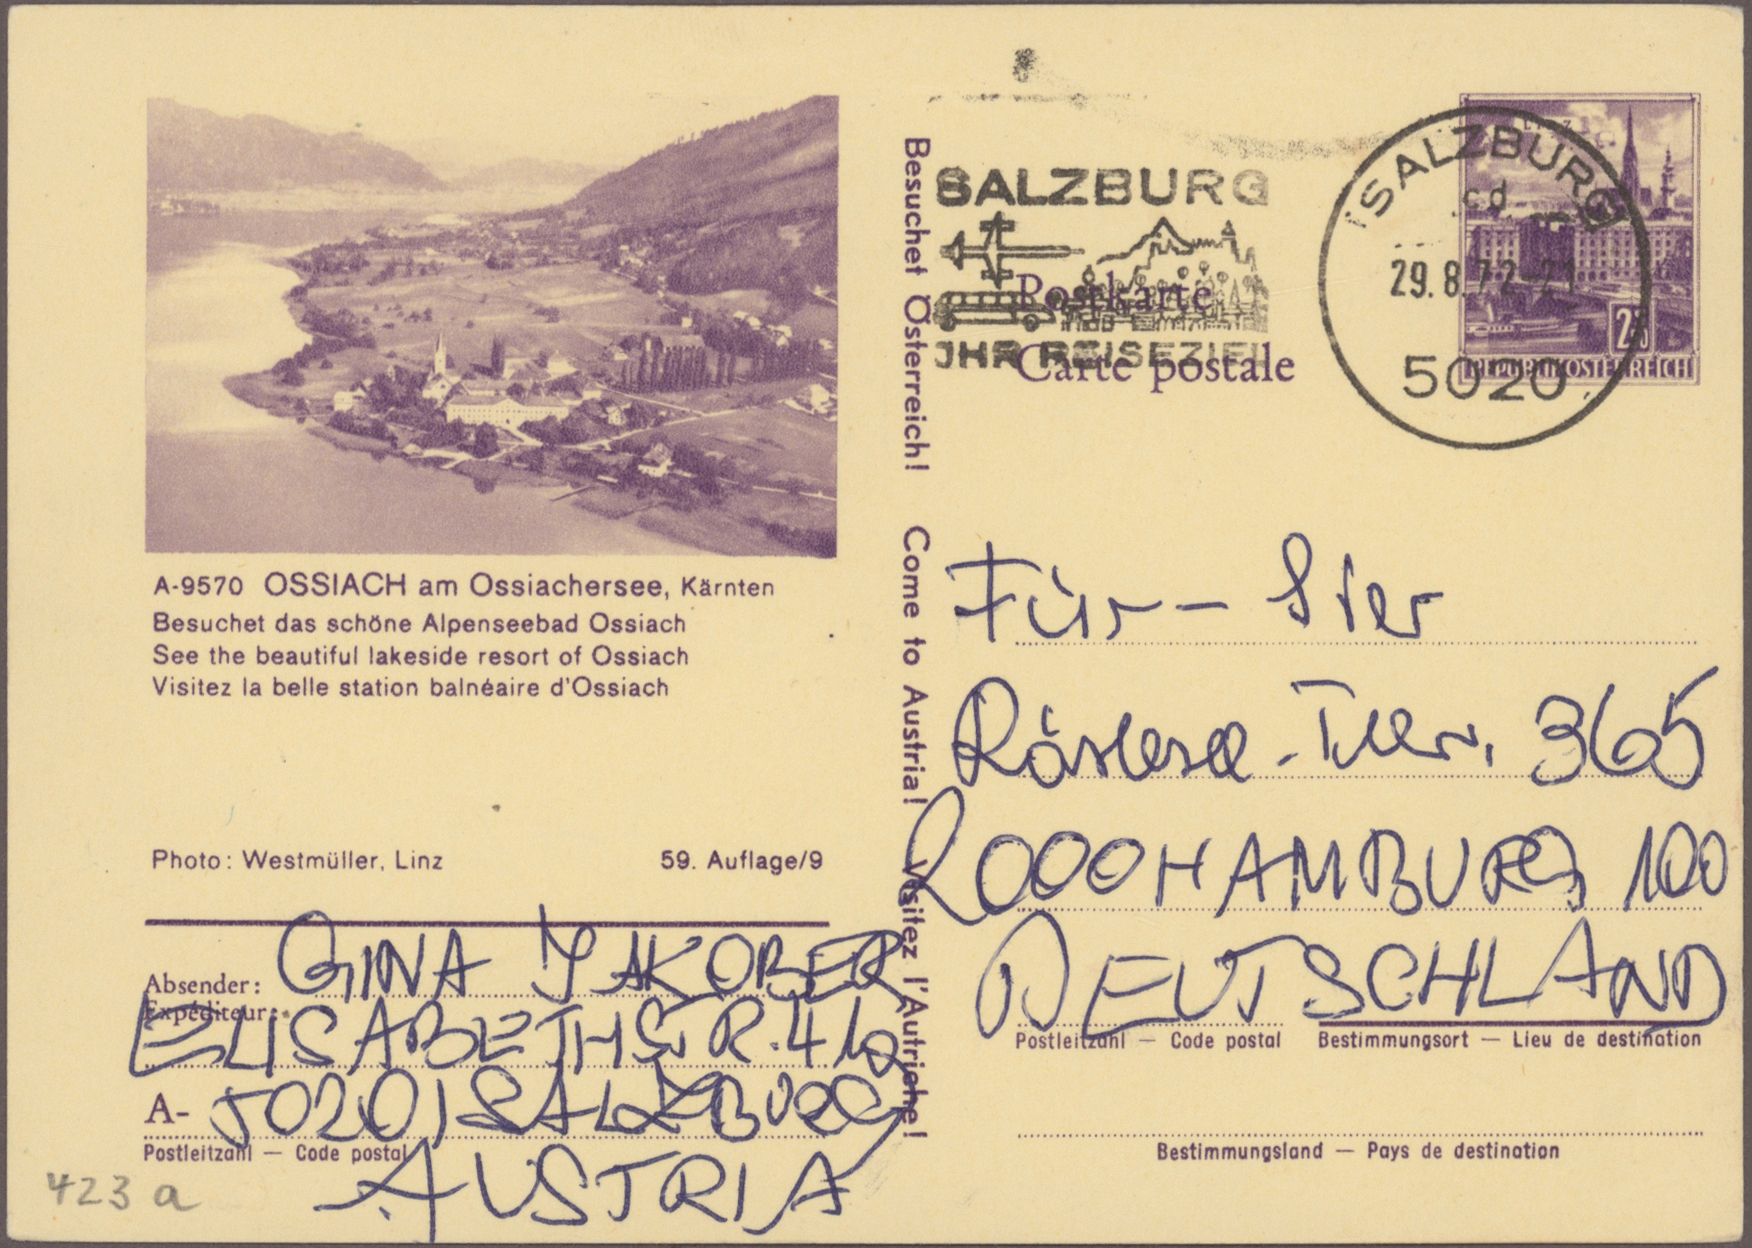 A-9570 OSSIACH am Ossiachersee, Kärnten
Besuchet das schöne Alpenseebad Ossiach
See the beautiful lakeside resort of Ossiach
Visitez la belle station balnéaire d'Ossiach
Photo: Westmüller, Linz
59. Auflage/9
Absender: GINA JAKOBER
Expéditeur:
ELISABETHSTR. 41a
A- 5020 SALZBURG
Postleitzahl — Code postal
AUSTRIA
423 a
Besuchet Österreich! Come to Austria! Visitez l'Autriche!
SALZBURG
Postkarte
IHR REISEZIEL
Carte postale
SALZBURG
cd
29.8.72-21
5020
REPUBLIK ÖSTERREICH
Für -
365
2000 HAMBURG 100
DEUTSCHLAND
Postleitzahl — Code postal
Bestimmungsort — Lieu de destination
Bestimmungsland — Pays de destination